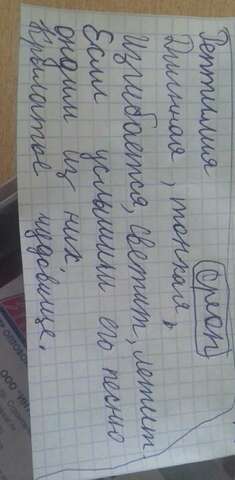 Рептилия
Орлоп
Длинная, тонкая,
Изгибается, светит, летит.
Если услышим его песню
одним из них,
Крылатые чудовище.
ООО